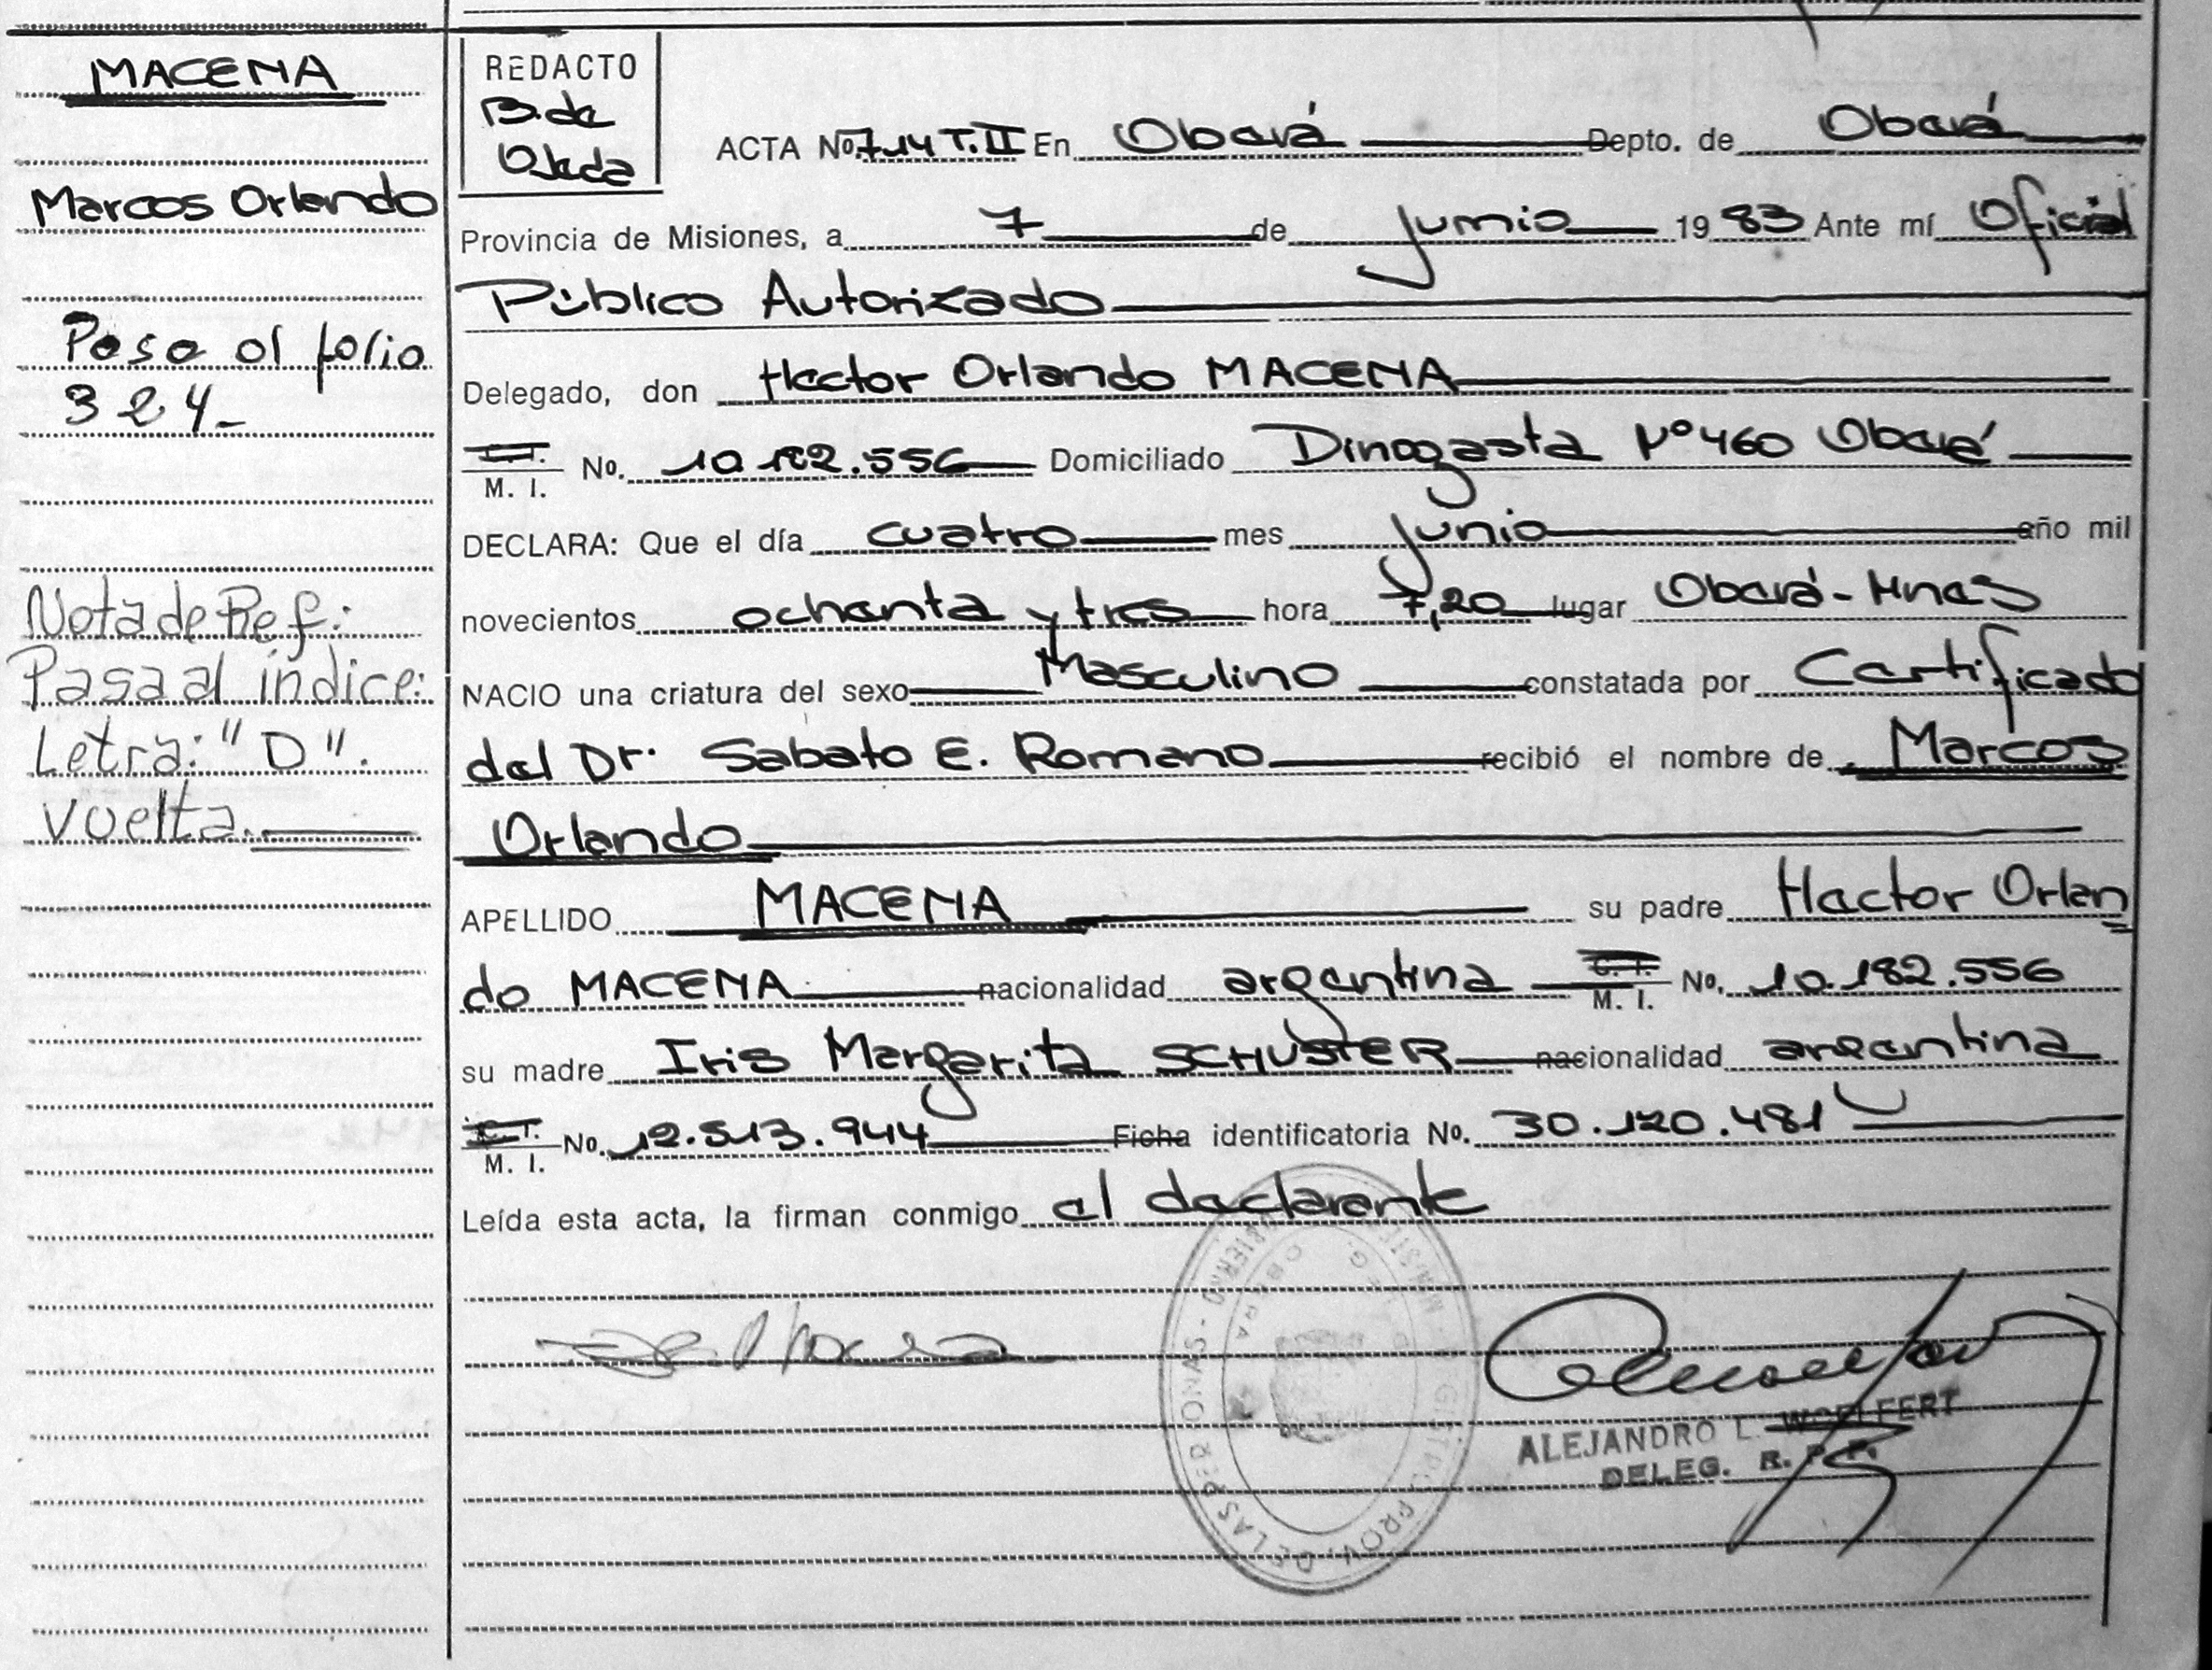 MACENA
Marcos Orlando
Pasa al folio
324-
Nota de Ref:
Pasa al índice:
Letra: "D".
Vuelta.
REDACTO
B. de
Ojeda
ACTA No. 714 T. II En Oberá Depto. de Oberá
Provincia de Misiones, a 7 de junio 1983 Ante mí Oficial
Público Autorizado
Delegado, don Hector Orlando MACENA
C. I. M. I. No. 10.182.556 Domiciliado N° 460 Oberá
DECLARA: Que el día cuatro mes junio año mil
novecientos ochenta y tres hora 7,20 lugar Oberá - Mnes
NACIO una criatura del sexo Masculino constatada por Certificado
del Dr. Sabato E. Romano recibió el nombre de Marcos
Orlando
APELLIDO MACENA su padre Hector Orlan
do MACENA nacionalidad argentina C. I. M. I. No. 10.182.556
su madre Iris Margarita SCHUSTER nacionalidad argentina
C. I. M. I. No. 12.513.944 Ficha identificatoria No. 30.120.481
Leída esta acta, la firman conmigo el declarante
ALEJANDRO L. WOELFERT
DELEG. R. P. P.